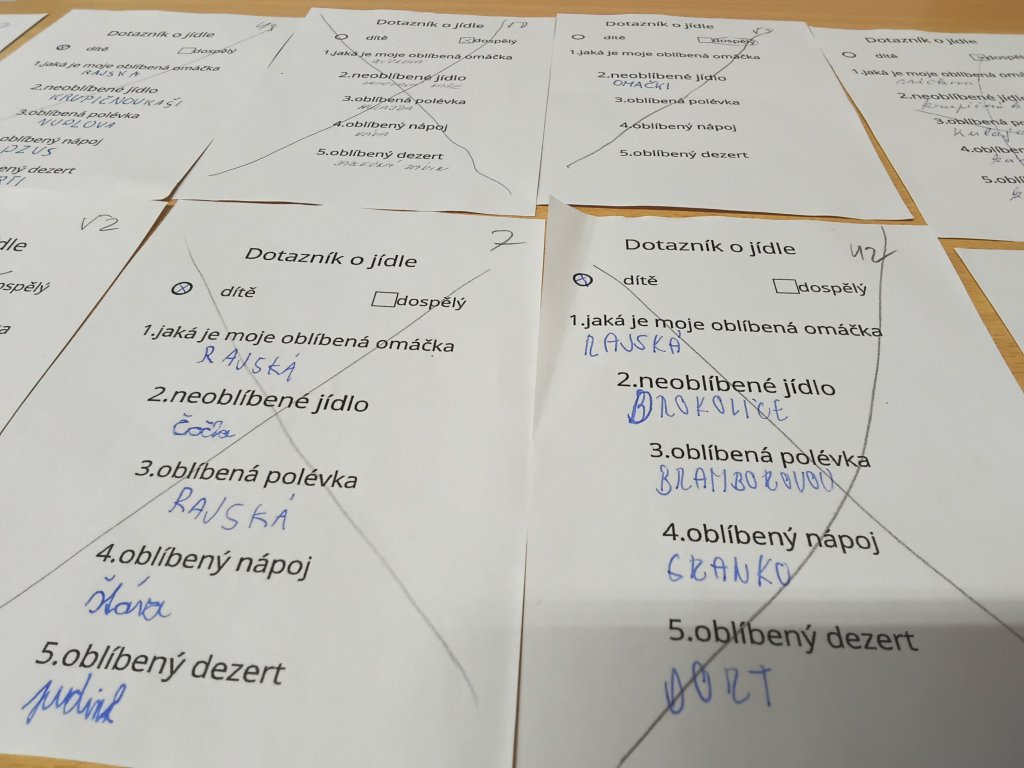 43
Dotazník o jídle
dítě dospělý
1.jaká je moje oblíbená omáčka
RAJSKÁ
2.neoblíbené jídlo
KRUPIČNOUKAŠI
3.oblíbená polévka
NUDLOVA
oblíbený nápoj
DZUS
ený dezert
RTI
50
Dotazník o jídle
dítě dospělý
1.jaká je moje oblíbená omáčka
2.neoblíbené jídlo
3.oblíbená polévka
4.oblíbený nápoj
KÁVA
5.oblíbený dezert
Dotazník o jídle
dítě dospělý
1.jaká je moje oblíbená omáčka
2.neoblíbené jídlo
OMAČKI
3.oblíbená polévka
4.oblíbený nápoj
5.oblíbený dezert
Dotazník o jídle
dítě dosp
1.jaká je moje oblíbená omá
2.neoblíbené jídl
3.oblíbená po
4.oblíb
5.obl
52
dle
ospělý
7
Dotazník o jídle
dítě dospělý
1.jaká je moje oblíbená omáčka
RAJSKÁ
2.neoblíbené jídlo
čočka
3.oblíbená polévka
RAJSKÁ
4.oblíbený nápoj
šťáva
5.oblíbený dezert
pudink
42
Dotazník o jídle
dítě dospělý
1.jaká je moje oblíbená omáčka
RAJSKÁ
2.neoblíbené jídlo
BROKOLICE
3.oblíbená polévka
BRAMBOROVOU
4.oblíbený nápoj
GRANKO
5.oblíbený dezert
DORT